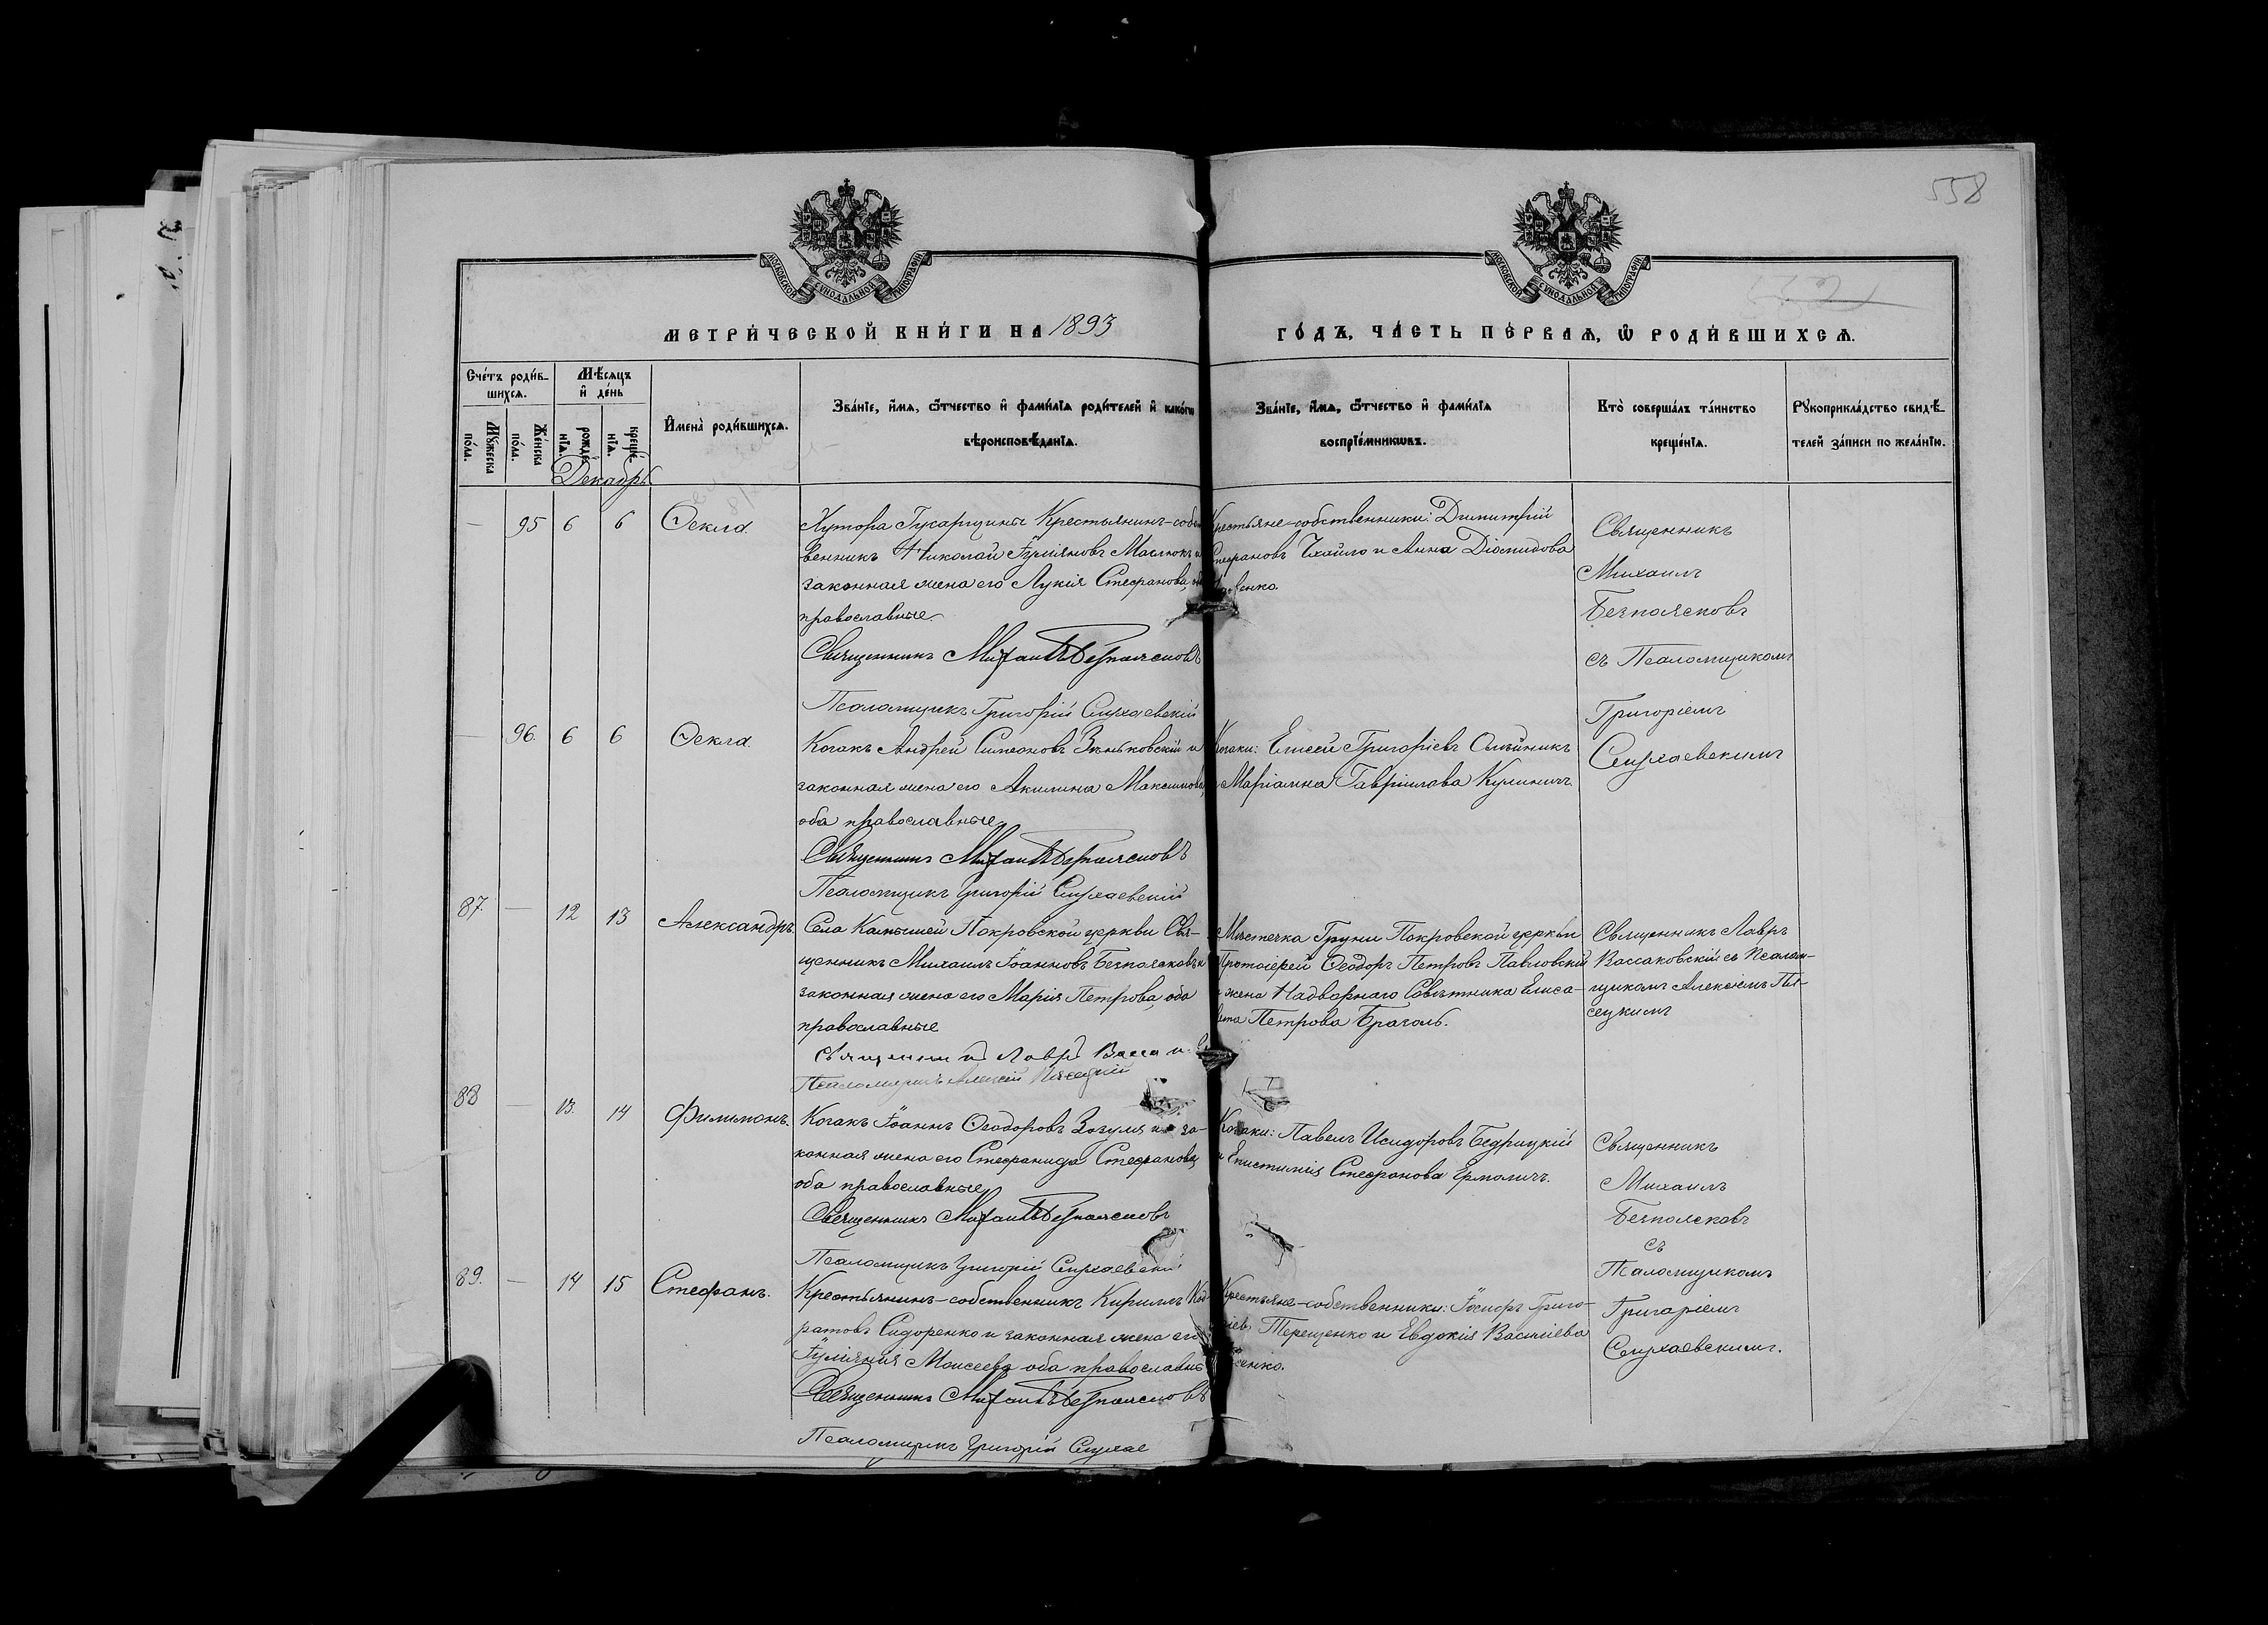 558
МОСКОВСКОЙ СѴНОДАЛЬНОЙ ТИПОГРАФІИ
МОСКОВСКОЙ СѴНОДАЛЬНОЙ ТИПОГРАФІИ
МЕТРИ́ЧЕСКОЙ КНИ́ГИ НА 1893 ГО́ДЪ, ЧА́СТЬ ПЕ́РВАѦ, Ѡ҆ РОДИ́ВШИХСѦ.
Сче́тъ роди́в-
шихсѧ.
Мѣ́сѧцъ
и҆ де́нь
Мꙋ́жеска по́ла.
Же́нска по́ла.
рожде́-
нїѧ.
креще́-
нїѧ.
И҆мена̀ роди́вшихсѧ.
Зва́нїе, и҆́мѧ, ѻ҆́тчество и҆ фами́лїѧ роди́телей и҆ како́гѡ
вѣроисповѣ́данїѧ.
Зва́нїе, и҆́мѧ, ѻ҆́тчество и҆ фами́лїѧ
воспрїе́мникѡвъ.
Кто̀ соверша́лъ та́инство
креще́нїѧ.
Рꙋкоприкла́дство свидѣ́-
телей за́писи по жела́нїю.
Декабрь
— 95 6 6 Ѳекла.
Хутора Гусарщины Крестьянинъ-собст
венникъ Николай Іуліановъ Маслюкъ и
законная жена его Лукія Стефанова, оба
православные.
Священникъ Михаилъ Безпоясковъ
Псаломщикъ Григорій
Крестьяне-собственники: Димитрій
Стефановъ и Анна Діомидова
Священникъ
Михаилъ
Безпоясковъ
съ Псаломщикомъ
Григоріемъ
— 96. 6 6 Ѳекла.
Козакъ Андрей Симеоновъ Зѣньковскій и
законная жена его Акилина Максимова,
оба православные
Священникъ Михаилъ Безпоясковъ
Псаломщикъ Григорій
Козаки: Елисей Григоріевъ Олѣйникъ
и Маріамна Гавріилова Кулиничъ.
87. — 12 13 Александръ.
Села Камышей Покровской церкви Свя-
щенникъ Михаилъ Іоанновъ Безпоясковъ и
законная жена его Марія Петрова, оба
православные
Священникъ Лавръ
Псаломщикъ Алексій
Мѣстечка Груни Покровской церкви
Протоіерей Ѳеодоръ Петровъ Павловскій
и жена Надворнаго Совѣтника Елиса-
вета Петрова Браголь.
Священникъ Лавръ
Вассаковскій съ Псалом-
щикомъ Алексіемъ Пя-
сецкимъ
88 — 13. 14 Филимонъ.
Козакъ Іоаннъ Ѳеодоровъ Зозуля и за-
конная жена его Стефанида Стефанова,
оба православные
Священникъ Михаилъ Безпоясковъ
Псаломщикъ Григорій
Козаки: Павелъ Исидоровъ Бедрицкій
и Епистимія Стефанова Ермоличъ.
Священникъ
Михаилъ
Безпоясковъ
съ
Псаломщикомъ
Григоріемъ
89. — 14 15 Стефанъ.
Крестьянинъ-собственникъ Кириллъ Код-
ратовъ Сидоренко и законная жена его
Іуліанія Моисеева оба православные
Священникъ Михаилъ Безпоясковъ
Псаломщикъ Григорій
Крестьяне-собственники: Іосифъ Григо-
ріевъ Терещенко и Евдокія Васильева